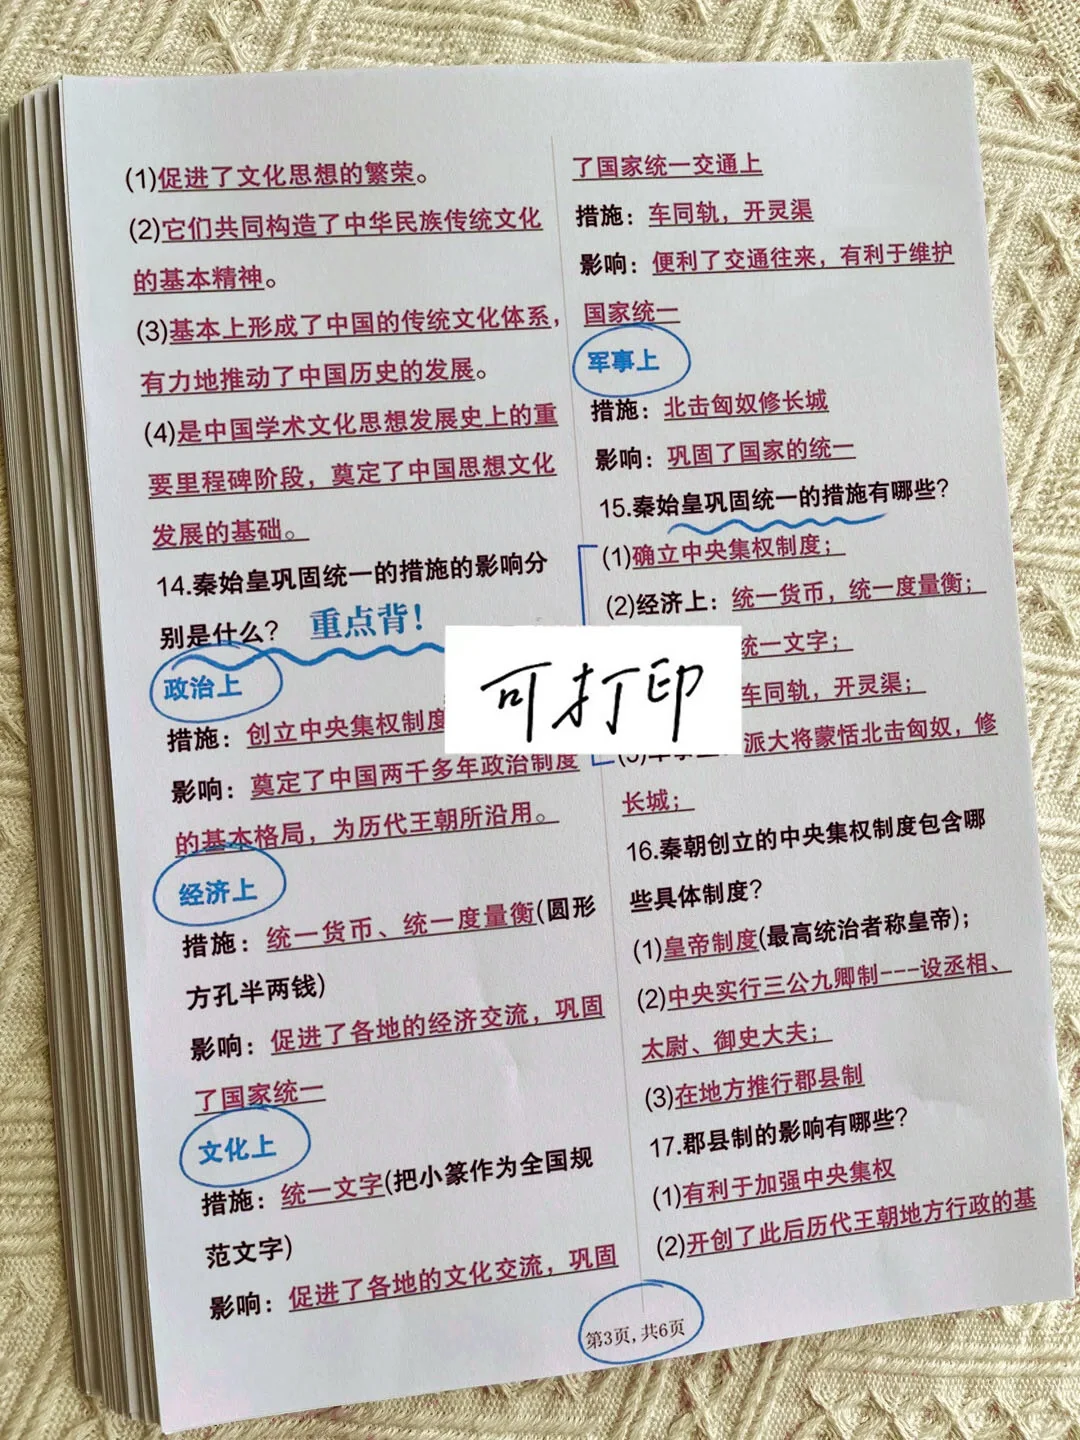 (1)促进了文化思想的繁荣。
(2)它们共同构造了中华民族传统文化
的基本精神。
(3)基本上形成了中国的传统文化体系，
有力地推动了中国历史的发展。
(4)是中国学术文化思想发展史上的重
要里程碑阶段，奠定了中国思想文化
发展的基础。
14.秦始皇巩固统一的措施的影响分
别是什么？ 重点背！
政治上
措施：创立中央集权制度
影响：奠定了中国两千多年政治制度
的基本格局，为历代王朝所沿用。
经济上
措施：统一货币、统一度量衡(圆形
方孔半两钱)
影响：促进了各地的经济交流，巩固
了国家统一
文化上
措施：统一文字(把小篆作为全国规
范文字)
影响：促进了各地的文化交流，巩固
了国家统一交通上
措施：车同轨，开灵渠
影响：便利了交通往来，有利于维护
国家统一
军事上
措施：北击匈奴修长城
影响：巩固了国家的统一
15.秦始皇巩固统一的措施有哪些？
(1)确立中央集权制度；
(2)经济上：统一货币，统一度量衡；
统一文字；
车同轨，开灵渠；
派大将蒙恬北击匈奴，修
长城；
16.秦朝创立的中央集权制度包含哪
些具体制度？
(1)皇帝制度(最高统治者称皇帝)；
(2)中央实行三公九卿制---设丞相、
太尉、御史大夫；
(3)在地方推行郡县制
17.郡县制的影响有哪些？
(1)有利于加强中央集权
(2)开创了此后历代王朝地方行政的基
可打印
第3页，共6页